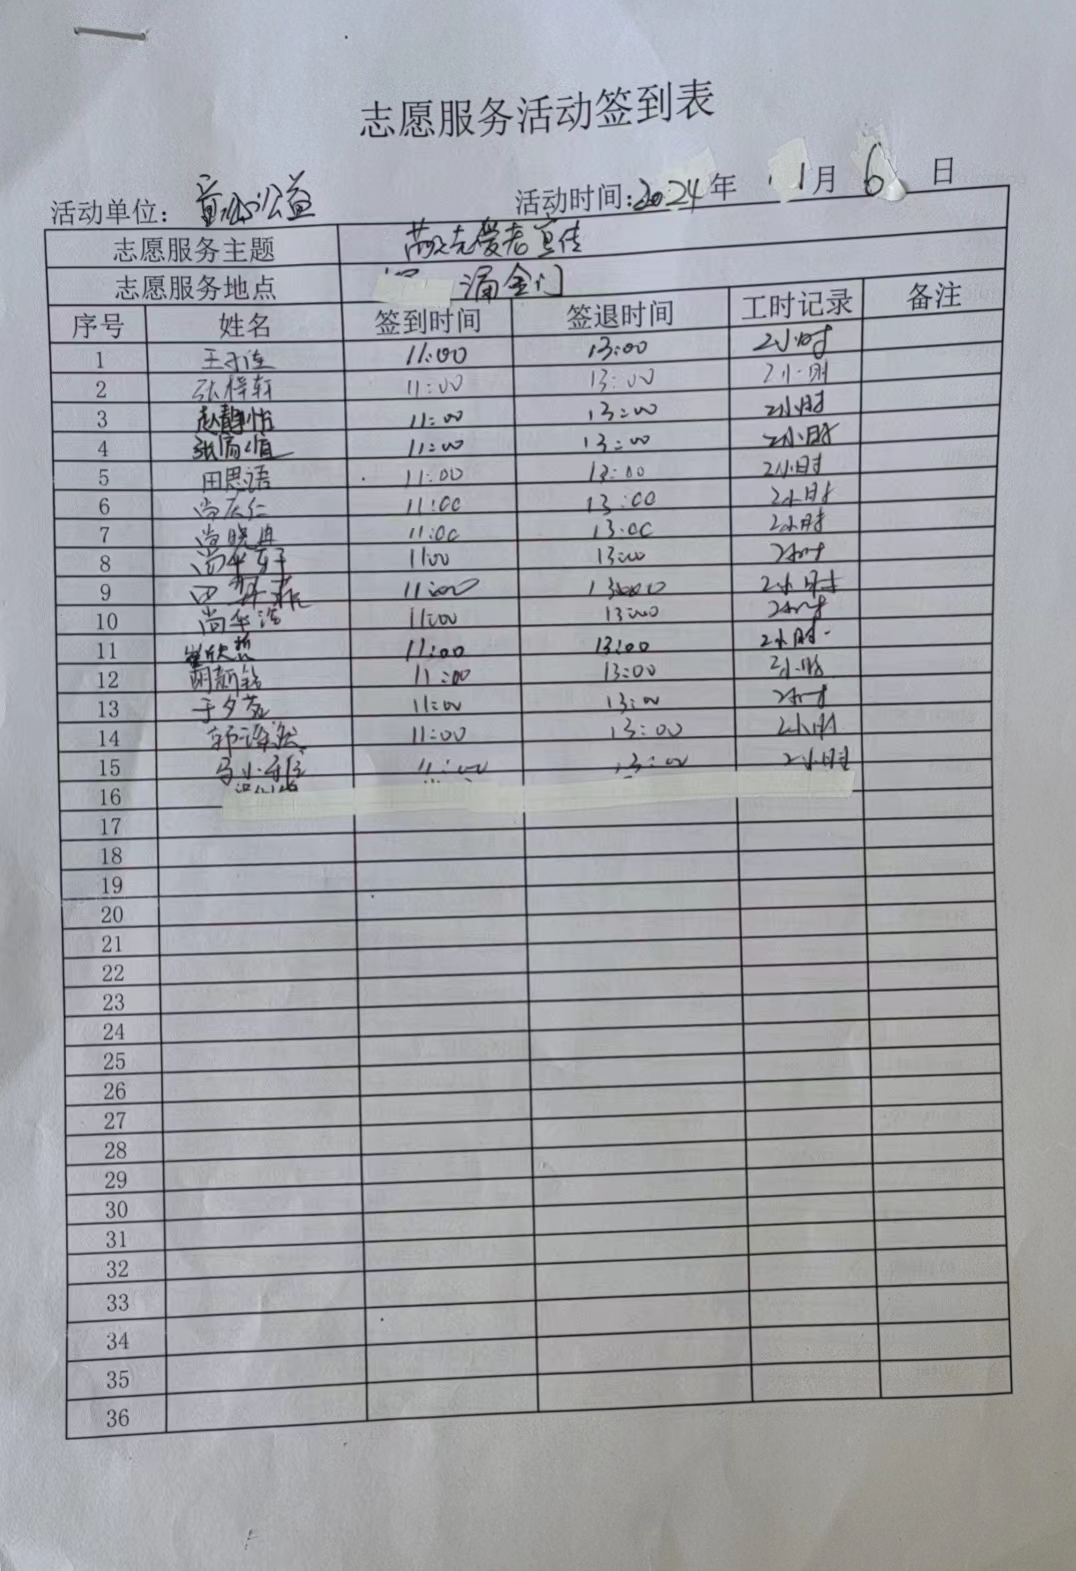 志愿服务活动签到表
活动单位： 公益 活动时间:2024年 1月 6 日
志愿服务主题 敬老爱老宣传
志愿服务地点 涌金门
序号 姓名 签到时间 签退时间 工时记录 备注
1 11:00 13:00 2小时
2 张梓轩 11:00 13:00 2小时
3 赵静怡 11:00 13:00 2小时
4 11:00 13:00 2小时
5 田思语 11:00 13:00 2小时
6 尚庆仁 11:00 13:00 2小时
7 尚晓冉 11:00 13:00 2小时
8 11:00 13:00 2小时
9 11:00 13:00 2小时
10 尚华浩 11:00 13:00 2小时
11 崔欣然 11:00 13:00 2小时
12 胡新铭 11:00 13:00 2小时
13 11:00 13:00 2小时
14 11:00 13:00 2小时
15 11:00 13:00 2小时
16
17
18
19
20
21
22
23
24
25
26
27
28
29
30
31
32
33
34
35
36